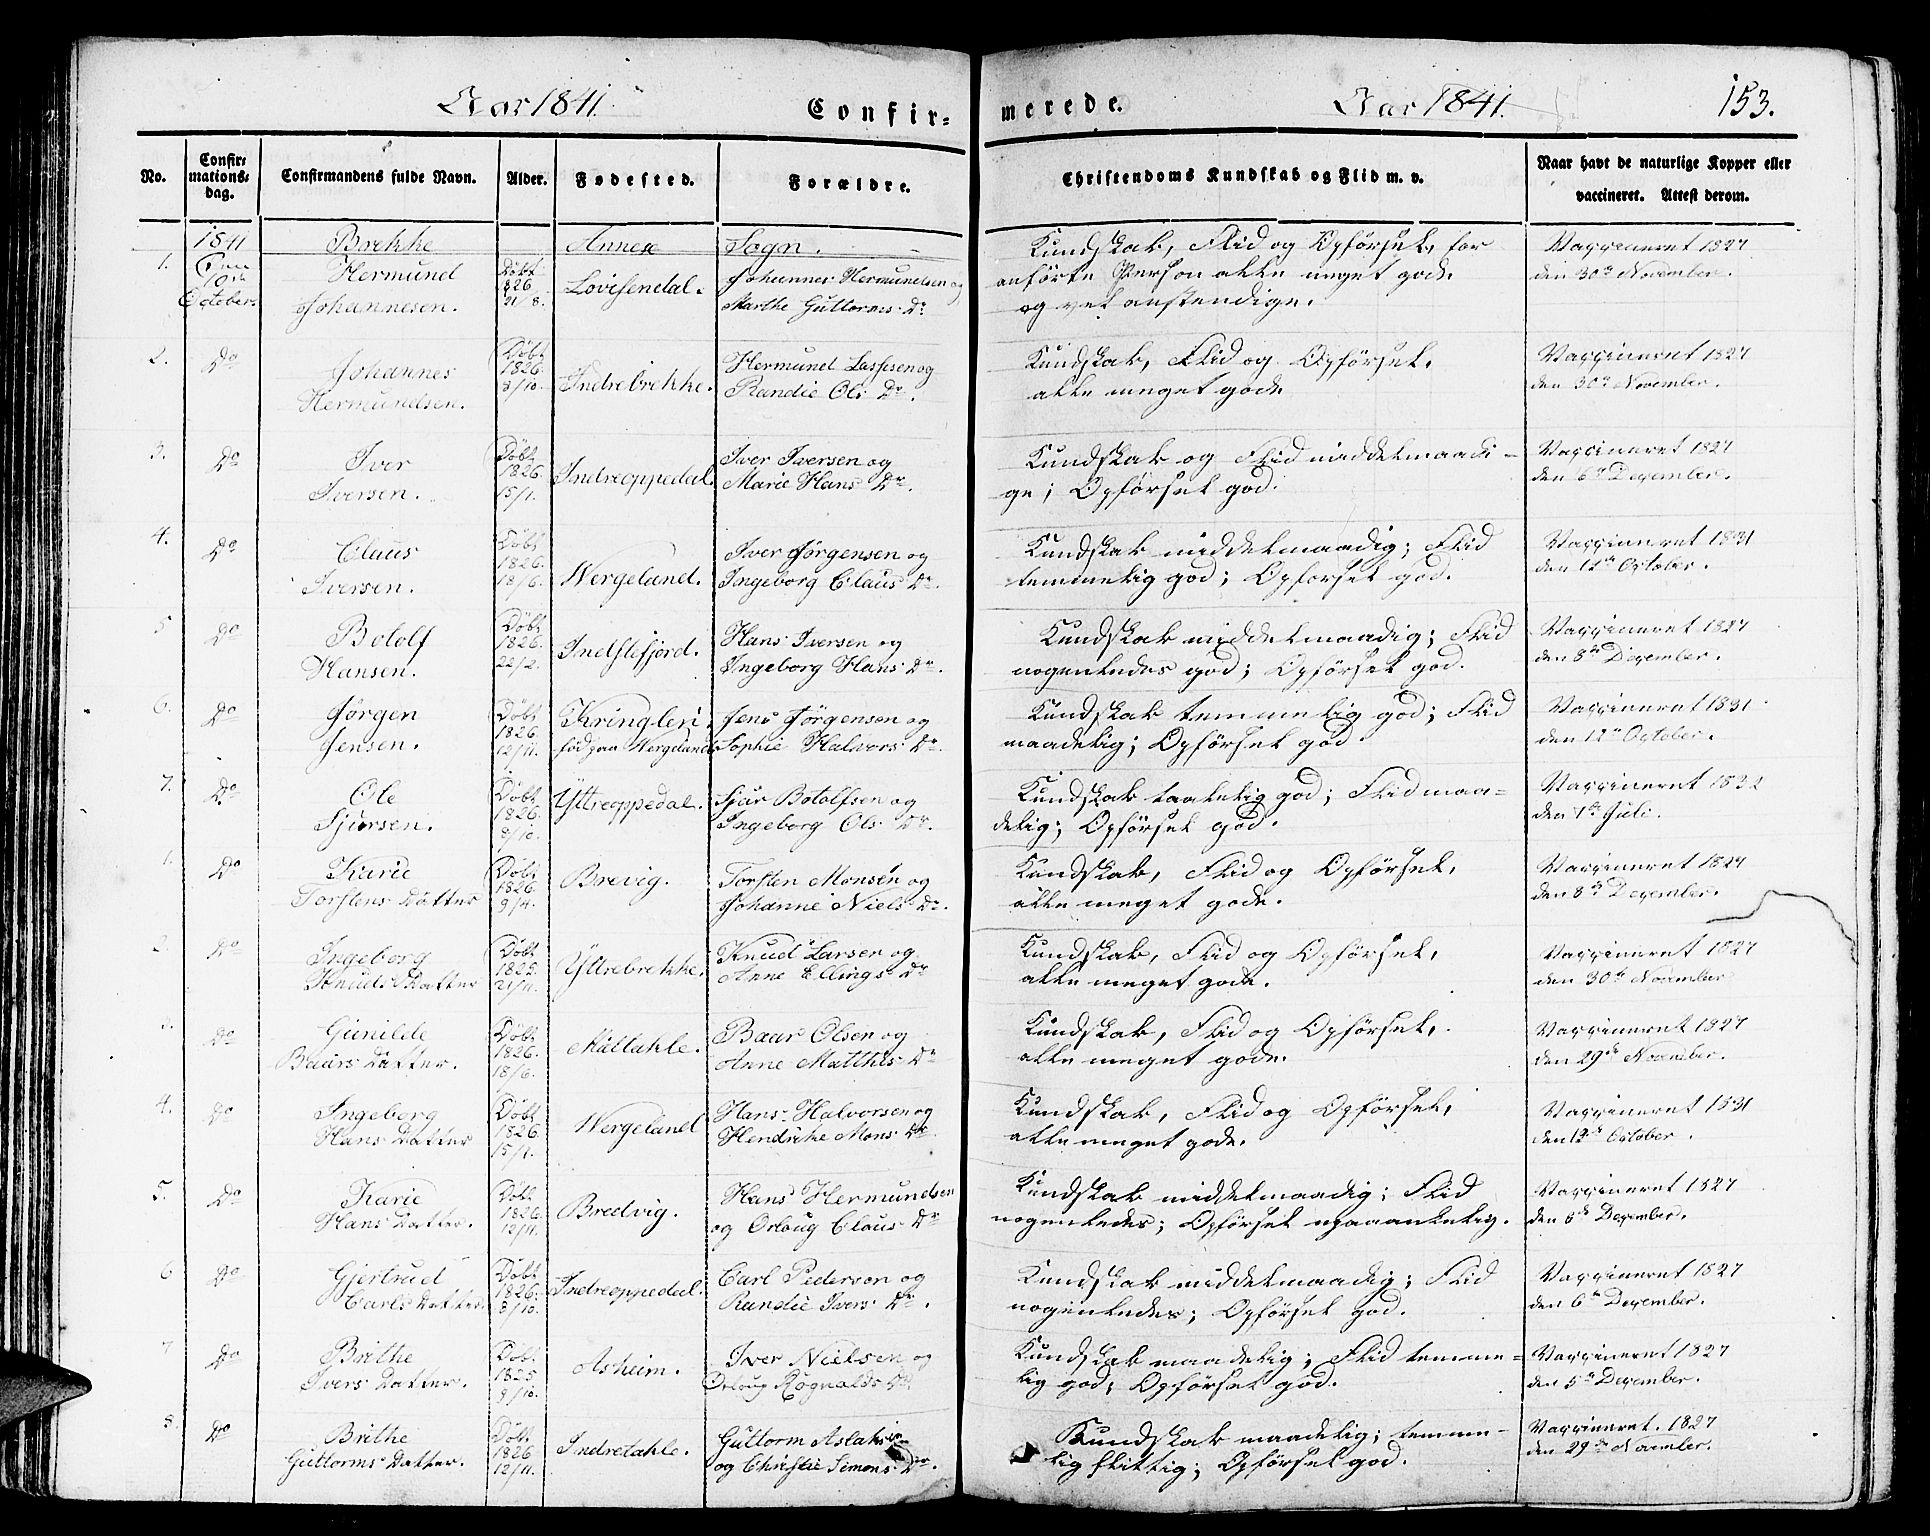 Aar 1841. Confir-
merede. Aar 1841. 153.
No. Confir-mations-dag. Confirmandens fulde Navn. Alder. Fødested. Forældre. Christendoms Kundskab og Flid m. v. Naar havt de naturlige Kopper eller vaccineret. Attest derom.
1841 Brekke Annex Sogn.
1. Den 10de October. Hermund Johannesen. Døbt 1826 21/8. Lovisendal. Johannes Hermundsen og Marthe Guttorms Dr
Kundskab, Flid og Opførsel, for
anførte Person alle meget gode
og vel anstendige.
Vaccineret 1827
den 30te November.
2. Do Johannes Hermundsen. Døbt 1826. 8/10. Indrebrekke. Hermund Lassesen og Randie Ols Dr.
Kundskab, Flid og Opførsel,
alle meget gode
Vaccineret 1827
den 30te November.
3. Do Iver Iversen. Døbt 1826. 15/1. Indreoppedal. Iver Iversen og Marie Hans Dr.
Kundskab og Flid middelmaadi-
ge; Opførsel god.
Vaccineret 1827
den 6te December.
4. Do Claus Iversen. Døbt 1826. 18/6. Wergeland. Iver Jørgensen og Ingeborg Claus Dr.
Kundskab middelmaadig; Flid
temmelig god; Opførsel god.
Vaccineret 1831
den 12te October.
5 Do Botolf Hansen. Døbt 1826. 22/2. Indstefjord. Hans Iversen og Ingeborg Hans Dr.
Kundskab middelmaadig; Flid
nogenledes god; Opførsel god.
Vaccineret 1827
den 8de December.
6. Do Jørgen Jensen. Døbt 1826. 12/11. Kringleri, fød paa Wergeland Jens Jørgensen og Sophie Halvors Dr.
Kundskab temmelig god; Flid
maadelig; Opførsel god
Vaccineret 1831
den 12te October.
7. Do Ole Sjursen. Døbt 1826. 8/10. Yttreoppedal. Sjur Botolfsen og Ingeborg Ols Dr.
Kundskab taalelig god; Flid maa-
delig; Opførsel god.
Vaccineret 1832
den 1te Juli.
1. Do Karie Torstens Datter Døbt 1826. 9/4. Brevig. Torsten Monsen og Johanne Niels Dr.
Kundskab, Flid og Opførsel,
alle meget gode.
Vaccineret 1827
den 8de December.
2. Do Ingeborg Knuds Datter Døbt 1825. 21/11. Yttrebrekke. Knud Larsen og Anne Ellings Dr
Kundskab, Flid og Opførsel,
alle meget gode.
Vaccineret 1827
den 30te November
3. Do Gunilde Baars Datter. Døbt 1826. 18/6. Maltahle. Baar Olsen og Anne Matthis Dr
Kundskab, Flid og Opførsel,
alle meget gode.
Vaccineret 1827
den 29de November.
4. Do Ingeborg Hans Datter Døbt 1826. 15/1. Wergeland Hans Halvorsen og Hendrike Mons Dr.
Kundskab, Flid og Opførsel,
alle meget gode.
Vaccineret 1831
den 12te October.
5. Do Karie Hans Datter. Døbt 1826. 12/11. Bredvig. Hans Hermundsen og Orloug Claus Dr
Kundskab middelmaadig; Flid
nogenledes; Opførsel upaaankelig.
Vaccineret 1827
den 8de December.
6 Do Gjertrud Carls Datter. Døbt 1826. 8/10. Indreoppedal. Carl Pederson og Randie Ivers Dr.
Kundskab middelmaadig; Flid
nogenledes; Opførsel god.
Vaccineret 1827
den 6te December.
7 Do Brithe Ivers Datter. Døbt 1825 9/10. Asheim. Iver Nielsen og Orloug Rognalds Dr.
Kundskab maadelig; Flid temme-
lig god; Opførsel god.
Vaccineret 1827
den 5te December.
8. Do Brithe Guttorms Datter. Døbt 1826 12/11. Indretahle. Guttorm Aslaksen og Christie Simons Dr.
Kundskab maadelig; temme-
lig flittig; Opførsel god.
Vaccineret. 1827
den 29de November.